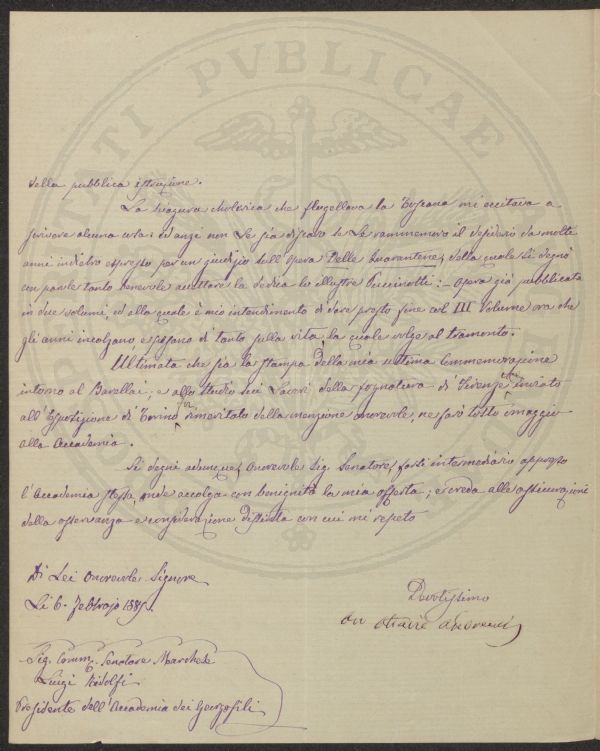 TATI PVBLICAE
della pubblica istruzione.
La sciagura cholerica che flagellava la Toscana mi eccitava a
scrivere alcuna cosa: ed anzi non Le sia discaro se Le rammemoro il desiderio da molti
anni indietro espresso per un giudizio sull'opera Delle Quarantene, della quale si degnò
con parole tanto benevole accettare la dedica lo illustre Puccinotti: – opera già pubblicata
in due volumi, ed alla quale è mio intendimento di dare presto fine col III Volume ora che
gli anni incalzano, e pesano di tanto sulla vita, la quale volge al tramonto.
Ultimata che sia la stampa della mia ultima Commemorazione
intorno al Barellai; e allo Studio sui Lavori della fognatura di Firenze inviato
all'Esposizione di Torino rimeritato della menzione onorevole, ne farò tosto omaggio
alla Accademia.
Si degni adunque, Onorevole Sig. Senatore, farsi intermediario appresso
l'Accademia stessa, onde accolga con benignità la mia offerta; e creda alle assicurazioni
della osservanza e considerazione distinta con cui mi repeto
Di Lei Onorevole Signore
Li 6. Febbrajo 1885.
Devotissimo
Sig. Comm. Senatore Marchese
Luigi Ridolfi
Presidente dell'Accademia dei Georgofili